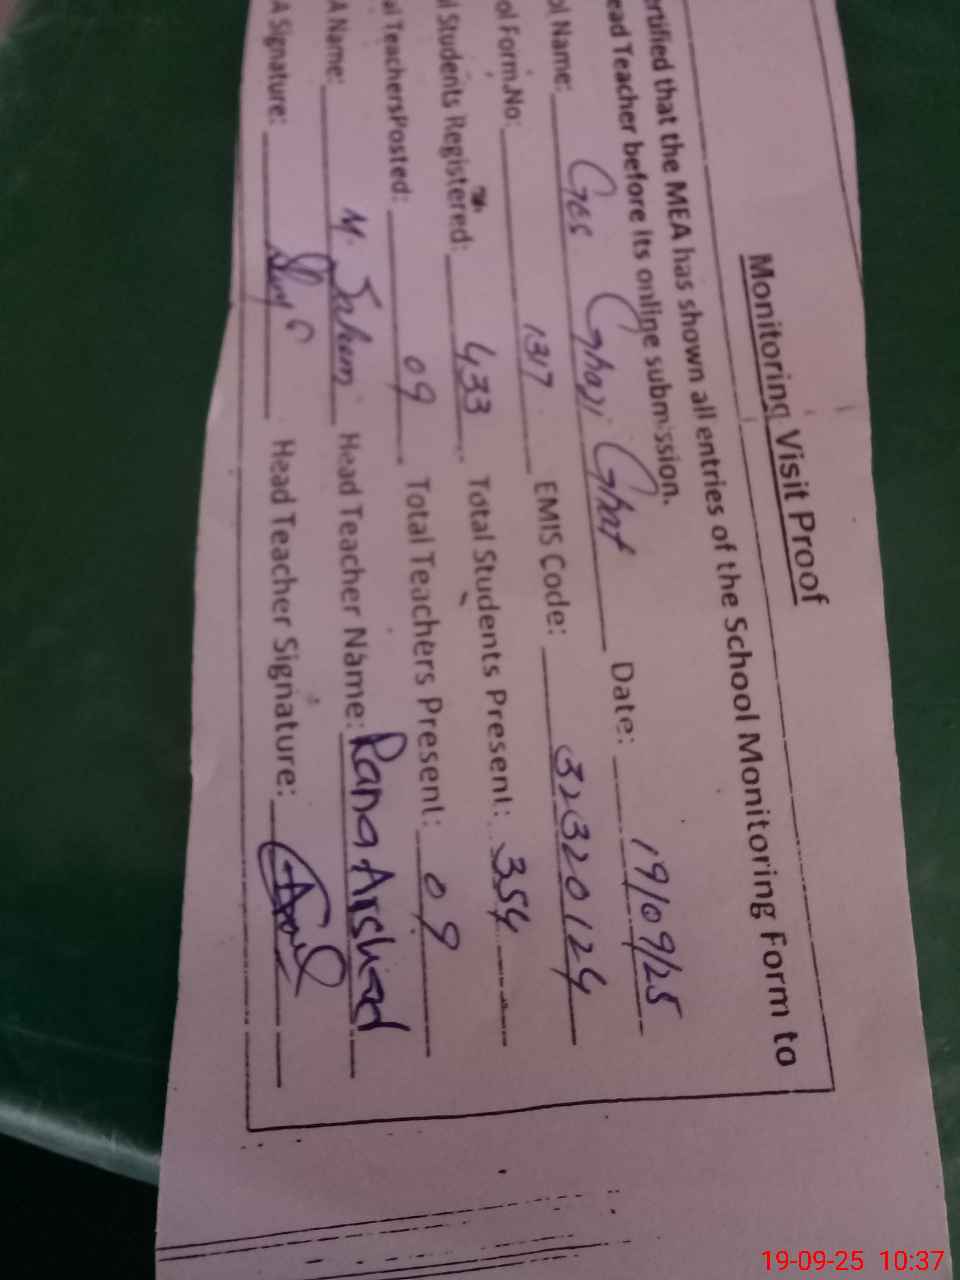 Monitoring Visit Proof
ertified that the MEA has shown all entries of the School Monitoring Form to
ead Teacher before its online submission.
ol Name: Ges Ghazi Ghat Date: 19/09/25
ol Form.No: 1317 EMIS Code: 32320124
l Students Registered: 433 Total Students Present: 354
al TeachersPosted: 09 Total Teachers Present: 09
A Name: M. Saleem Head Teacher Name: Rana Arshad
A Signature: Head Teacher Signature:
19-09-25 10:37